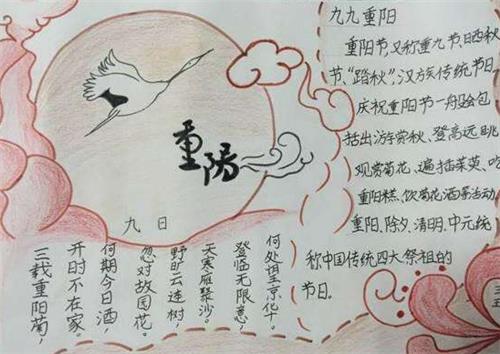 重阳
九九重阳
重阳节,又称重九节、晒秋
节、“踏秋”,汉族传统节日
庆祝重阳节一般会包
括出游赏秋、登高远眺
观赏菊花、遍插茱萸、吃
重阳糕、饮菊花酒等活动
重阳、除夕、清明、中元统
称中国传统四大祭祖的
节日。
九日
三载重阳菊,
开时不在家。
何期今日酒,
忽对故园花。
野旷云连树,
天寒雁聚沙。
登临无限意,
何处望京华。